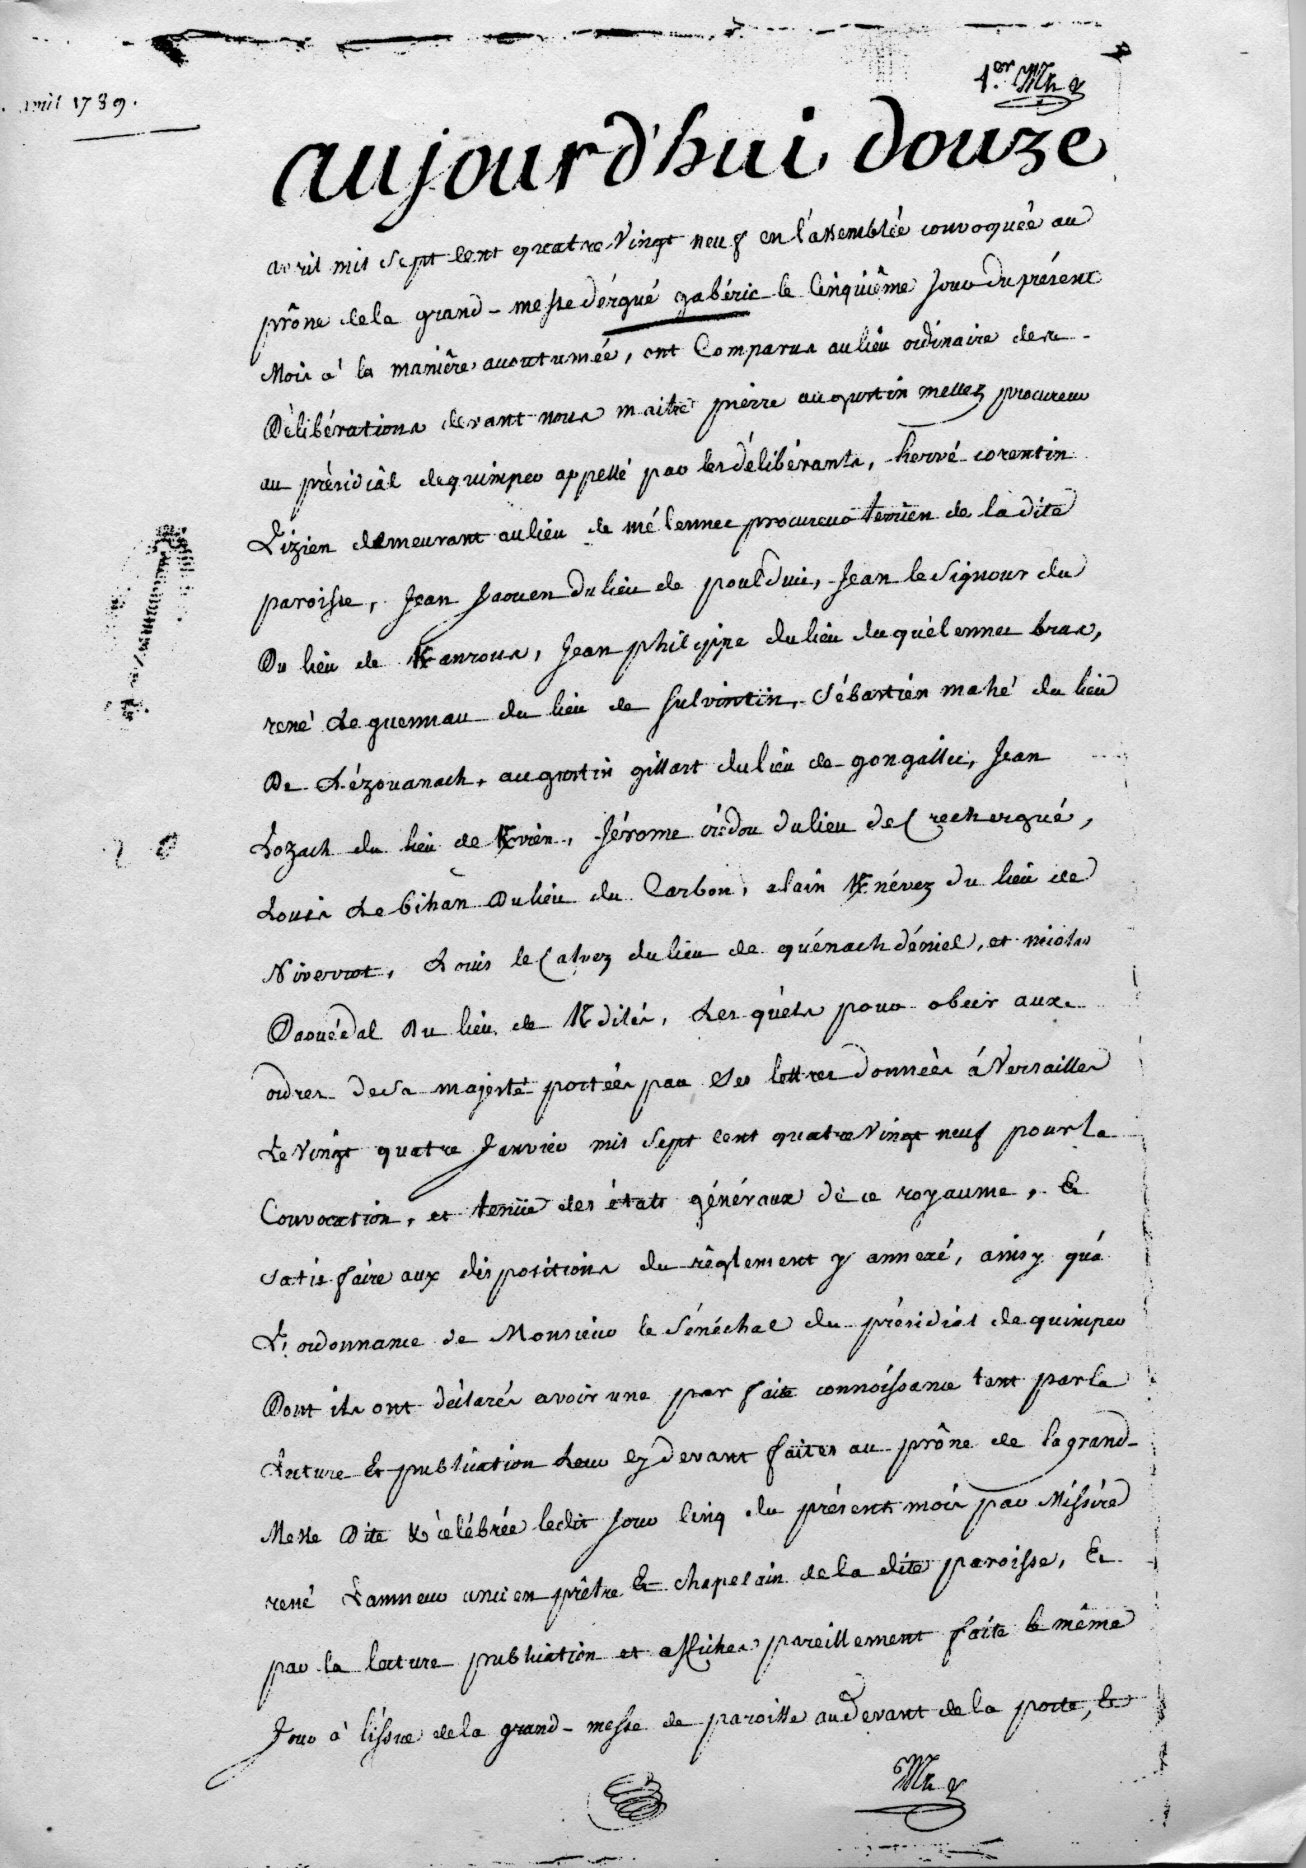 avril 1789.
1.er
aujourd'hui douze
avril mil sept cent quatre Vingt neuf en l'assemblée convoquée au
prône de la grand-messe d'érgué gabéric le Cinquiême Jour du présent
Mois a' la manière accoutumée, ont Comparus au lieu ordinaire des
Délibérations devant nous maitre pierre augustin mellez procureur
au présidiâl de quimper appellé par les délibérants, hervé corentin
Lizien demeurant au lieu de mélennec procureur terrien de la dite
paroisse, Jean Jaouen Du lieu de poulduic, Jean le Signour du
Du lieu de Kanrous, Jean philippe du lieu du quélennec bras,
rené Le guennau du lieu de Sulvintin, Sébastién mahé du lieu
De Lézouanach, augustin gillart du lieu de gongallic, Jean
Lozach du lieu de Kvrèn, Jérome crédou du lieu de Crechergué,
Louis Le bihan Du lieu du Carbon, alain Knévez du lieu de
Niverrot, Louis le Calvez du lieu de quénach déniel, et nicolas
Daouédal Du lieu de Kdilés, Les quéls pour obeir aux
ordres de sa majesté portées par Ses lettres données á Versailles
Le Vingt quatre Janvier mil Sept cent quatre Vingt neuf pour la
Convocation, et tenüe des états généraux de ce royaume, &
satisfaire aux dispositions du réglement y annexé, ainsy qu'à
L'ordonnance de Monsieur le Sénéchal du présidial de quimper
Dont ils ont déclarés avoir une parfaite connoissance tant par la
Lecture & publication Leur cy devant faites au prône de la grand-
Messe Dite & célébrée ledit Jour Cinq du présent mois par Missire
rené Lamneur ancien prêtre & chapelain de la dite paroisse, &
par la lecture publication et affiches pareillement faite le même
Jour à l'issue de la grand-messe de paroisse au devant de la porte, le